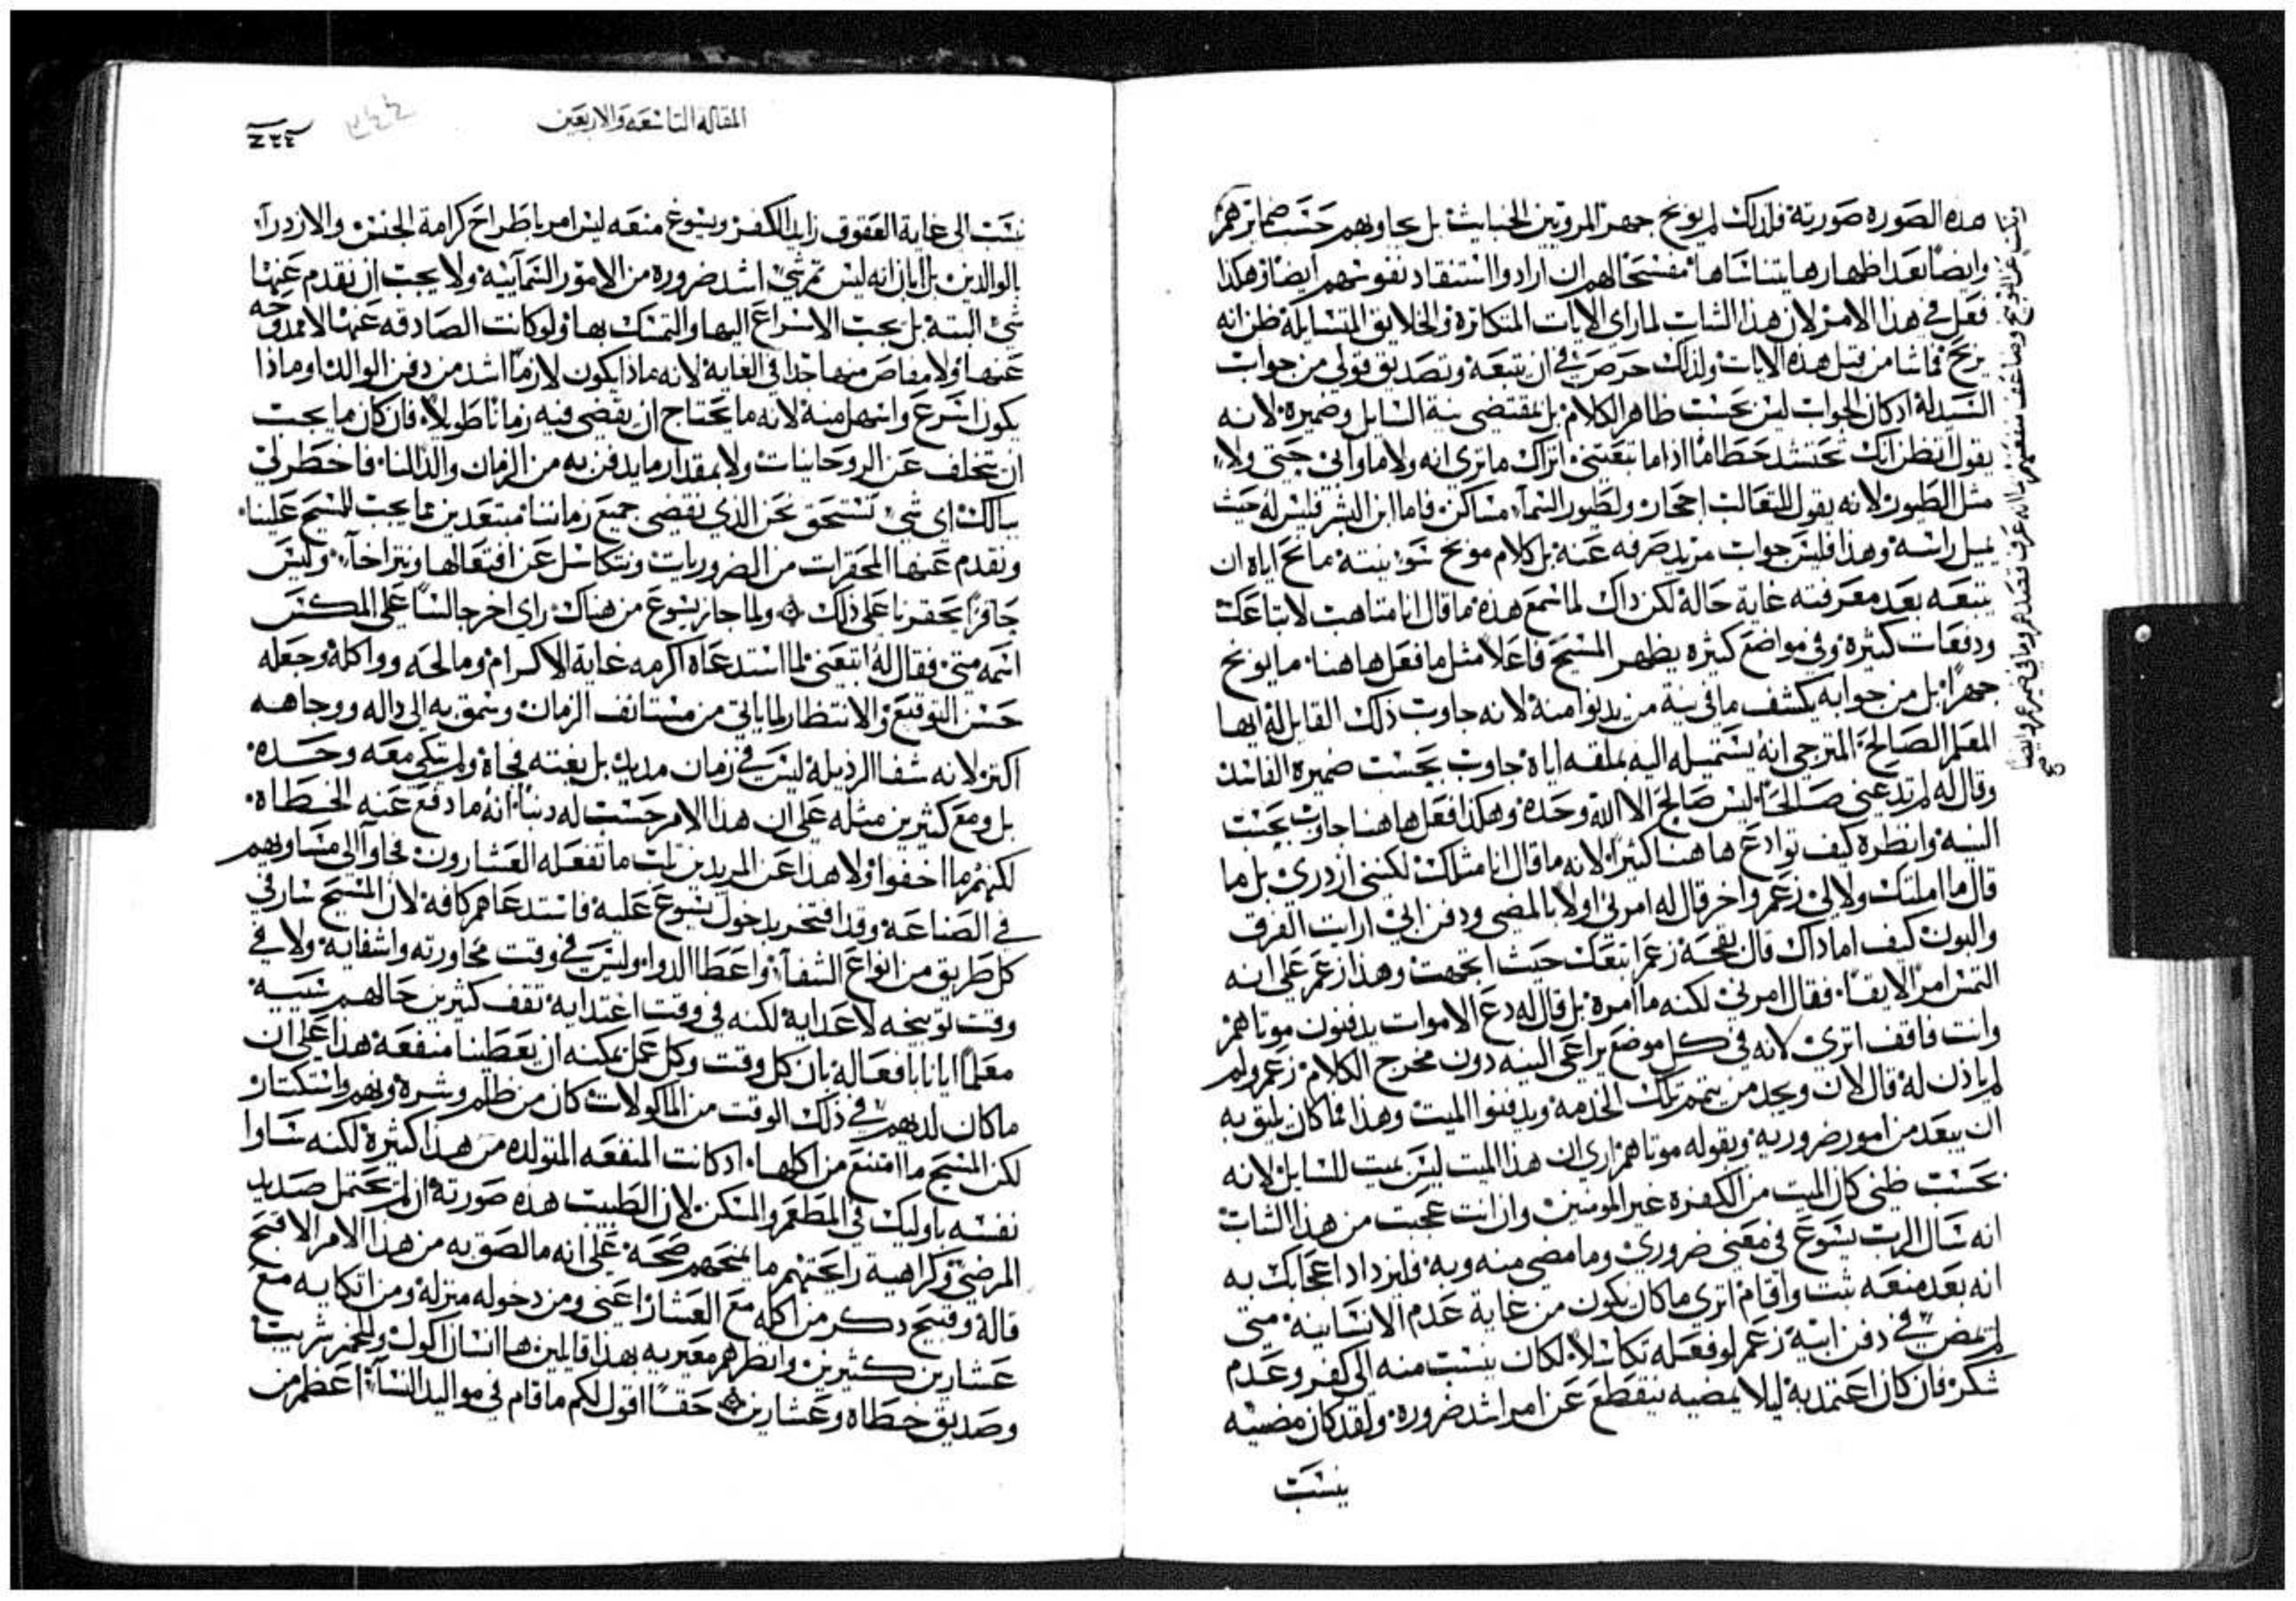 هذه الصورة صورته فلذلك لم يوبخ جهرًا المروتين الخبايث بل يجاوبهم حسب ضمايرهم
وايضًا بعد اظهارها يتناساها مفسحًا لهم ان ارادوا استنقاد نفوسهم ايضًا وهكذا
فعل في هذا الامر لان هذا الشاب لما راي الايات المتكاثرة والخلايق المتسايلة ظن انه
يربح مماشا من قبل هذه الايات ولذلك حرص في ان يتبعه وتصديق قولي من جواب
السيد له اذ كان الجواب ليس بحسب ظاهر الكلام بل بمقتضى نية السايل وضميره لانه
يقول اتظن انك تحتشد حطامًا اذا ما تبعتني اتراك ما تري انه ولا ماواي حتي ولا
مثل الطيور لانه يقول للثعالب احجار ولطيور السمآ مساكن فاما ابن البشر فليس له حيث
يميل راسه وهذا فليس جواب مريد صرفه عنه بل كلام موبخ سو نيته مانحًا اياه ان
يتبعه بعد معرفته غاية حاله لكن ذاك لما سمع هذه ما قال انا متاهب لاتباعك
ودفعات كثيرة وفي مواضع كثيره يظهر المسيح فاعلًا مثل ما فعل هاهنا ما يوبخ
جهرًا بل من جوابه يكشف ما في نية من يدنوا منه لانه جاوب ذلك القايل له ايها
المعلم الصالح المترجي انه يستميله اليه بملقه اياه جاوب بحسب ضميره الفاسد
وقال له لم تدعني صالحًا ليس صالح الا الله وحده وهكذا فعل هاهنا جاوب بحسب
النية وانظره كيف توادع هاهنا كثيرًا لانه ما قال انا مثلك لكنني ازدري بل ما
قال ما املتك ولا لي زعم واخر قال له امرني اولًا بالمضي ودفن ابي ارايت الفرق
والبون كيف اما ذاك قال بقحة زعم اتبعك حيث اتجهت وهذا زعم علي انه
التمس امر الايقا فقال امرني لكنه ما امره بل قال له دع الاموات يدفنون موتاهم
وانت فاقف اثري لانه في كل موضع يراعي النية دون مخرج الكلام زعم ولم
لم ياذن له قال لان ويجد من يتمم تلك الخدمه ويدفنوا الميت وهذا فما كان يليق به
ان يبعد من امور ضروريه وبقوله موتاهم اري ان هذا الميت ليس بميت للسايل لانه
بحسب ظني كان الميت من الكفرة غير المومنين وان انت عجبت من هذا الشاب
انه سال الرب يسوع في معني ضروري وما مضي منه وبه فليزداد اعجابك به
انه بعد منعه ثبت واقام اتري ما كان يكون من غاية عدم الانسانية متي
لم يمض في دفن ابيه زعم لو فعله تكاسلًا لكان ينسب منه الي كفر وعدم
شكر فان كان اعتمد به ليلا يمضيه ينقطع عن امر اشد ضرورة ولقد كان مضيه
ينسب
المقاله التاسعه والاربعين
٣٤٤
ينسب الي غاية العقوق زايد الكفر ويسوع منعه ليس امر باطراح كرامة الجنس والازدرآ
بالوالدين بل ابان انه ليس ثم شي اشد ضروره من الامور السمآييه ولا يجب ان نقدم عنها
شي البتة بل يجب الاسراع اليها والتمسك بها ولو كانت الصادقه عنها لا ممدوحه
عنها ولا مفاص منها جدا في الغاية لانه ماذا يكون لازمًا اشد من دفن الوالد وماذا
يكون اسرع واسهل منه لانه ما يحتاج ان يقضي فيه زمانًا طويلًا فان كان ما يجب
ان تتخلف عن الروحانيات ولا بمقدار ما يدفن به من الزمان والد لنا فاخطر لي
ببالك اي شي نستحق نحن الذي نقضي جميع زماننا مبتعدين عما يجب للمسيح علينا
ونقدم عنها المحقرات من الضروريات ونتكاسل عن افتعالها ونتراخآ وليس
حافزًا يحفزنا علي ذلك ۞ ولما جاز يسوع من هناك راي اخر جالسًا علي المكس
اسمه متي فقال له اتبعني لما استدعاه اكرمه غاية الاكرام ومالحه وواكله وجعله
حسن التوقيع والانتظار لما ياتي من مستانف الزمان وسمق به الي داله ووجاهه
اكثر لانه شفا الرذيلة ليس في زمان مديد بل بغته فجاة ولم يتكي معه وحده
بل ومع كثيرين مثله علي ان هذا الامر حسب له دنبًا انه ما دفع عنه الخطاه
لكنهم ما اخفوا ولا هذا عن المريدين ثلب ما تفعله العشارون فجاوآ الي مساويهم
في الصناعة وقد افتخر بدخول يسوع عليه فاستدعاهم كافة لان المسيح سار في
كل طريق من انواع الشفآ واعطا الدوا وليس في وقت محاورته واشفايه ولا في
وقت توبيخه لاعدايه لكنه في وقت اغتدايه تقف كثيرين حالهم سيية
معلمًا ايانا بافعاله بان كل وقت وكل عمل يمكنه ان يعطينا منفعة هذا علي ان
ما كان لديهم في ذلك الوقت من الماكولات كان من ظلم وشره ونهم واستكثار
لكن المسيح ما امتنع من اكلها اذ كانت المنفعه المتولده من هذا كثيرة لكنه ساوا
نفسه باوليك في المطعم والمسكن لان الطبيب هذه صورته ان لم يحتمل صديد
المرضي وكراهية رايحتهم ما يمنحهم صحة علي انه ما لصق به من هذا الامر الا قبح
قالة وقبيح ذكر من اكله مع العشار اعني ومن دخوله منزله ومن اتكايه مع
عشارين كثيرين وانظرهم معيريه بهذا قايلين ها انسان اكول وللخمر شريب
وصديق خطاه وعشارين ۞ حقًا اقول لكم ما قام في مواليد النسآ اعظم من